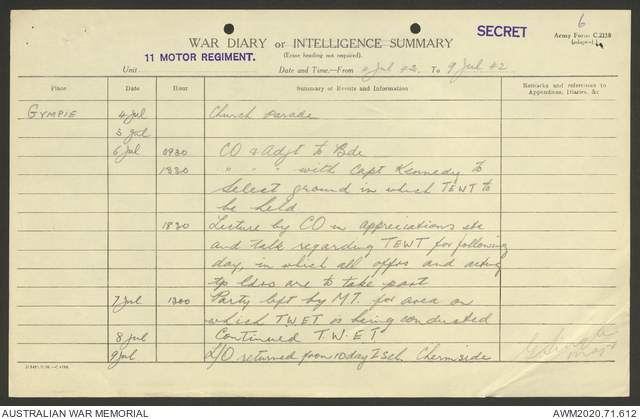 6
SECRET
Army Form C.2118
(adapted)
WAR DIARY or INTELLIGENCE SUMMARY
(Erase heading not required).
11 MOTOR REGIMENT.
Unit Date and Time—From 4 Jul 42 To 9 Jul 42
Place Date Hour Summary of Events and Information Remarks and references to Appendices, Diaries, &c
GYMPIE 4 Jul Church Parade
5 Jul
6 Jul 0930 CO & Adjt to Bde
1330 " " " with Capt Kennedy to
select ground in which TEWT to
be held
1830 Lecture by CO on appreciations etc
and talk regarding TEWT for following
day, in which all offrs and acting
tp ldrs are to take part
7 Jul 1300 Party left by M.T. for area on
which TWET is being conducted
8 Jul Continued T.W.E.T
9 Jul L/O returned from 10 day I Sch. Chermside
AUSTRALIAN WAR MEMORIAL
AWM2020.71.612